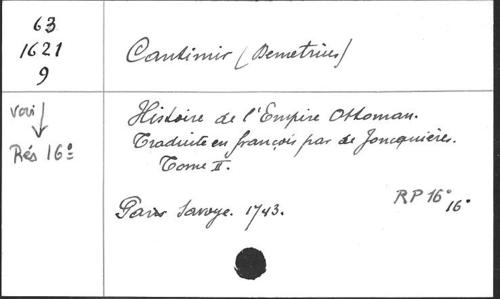 63
1621
9
Cantimir (Demetrius)
voir
Rés 16°
Histoire de l'Empire Ottoman.
Traduite en françois par de Joncquières.
Tome II.
Paris Savoye. 1743.
RP 16°
16°